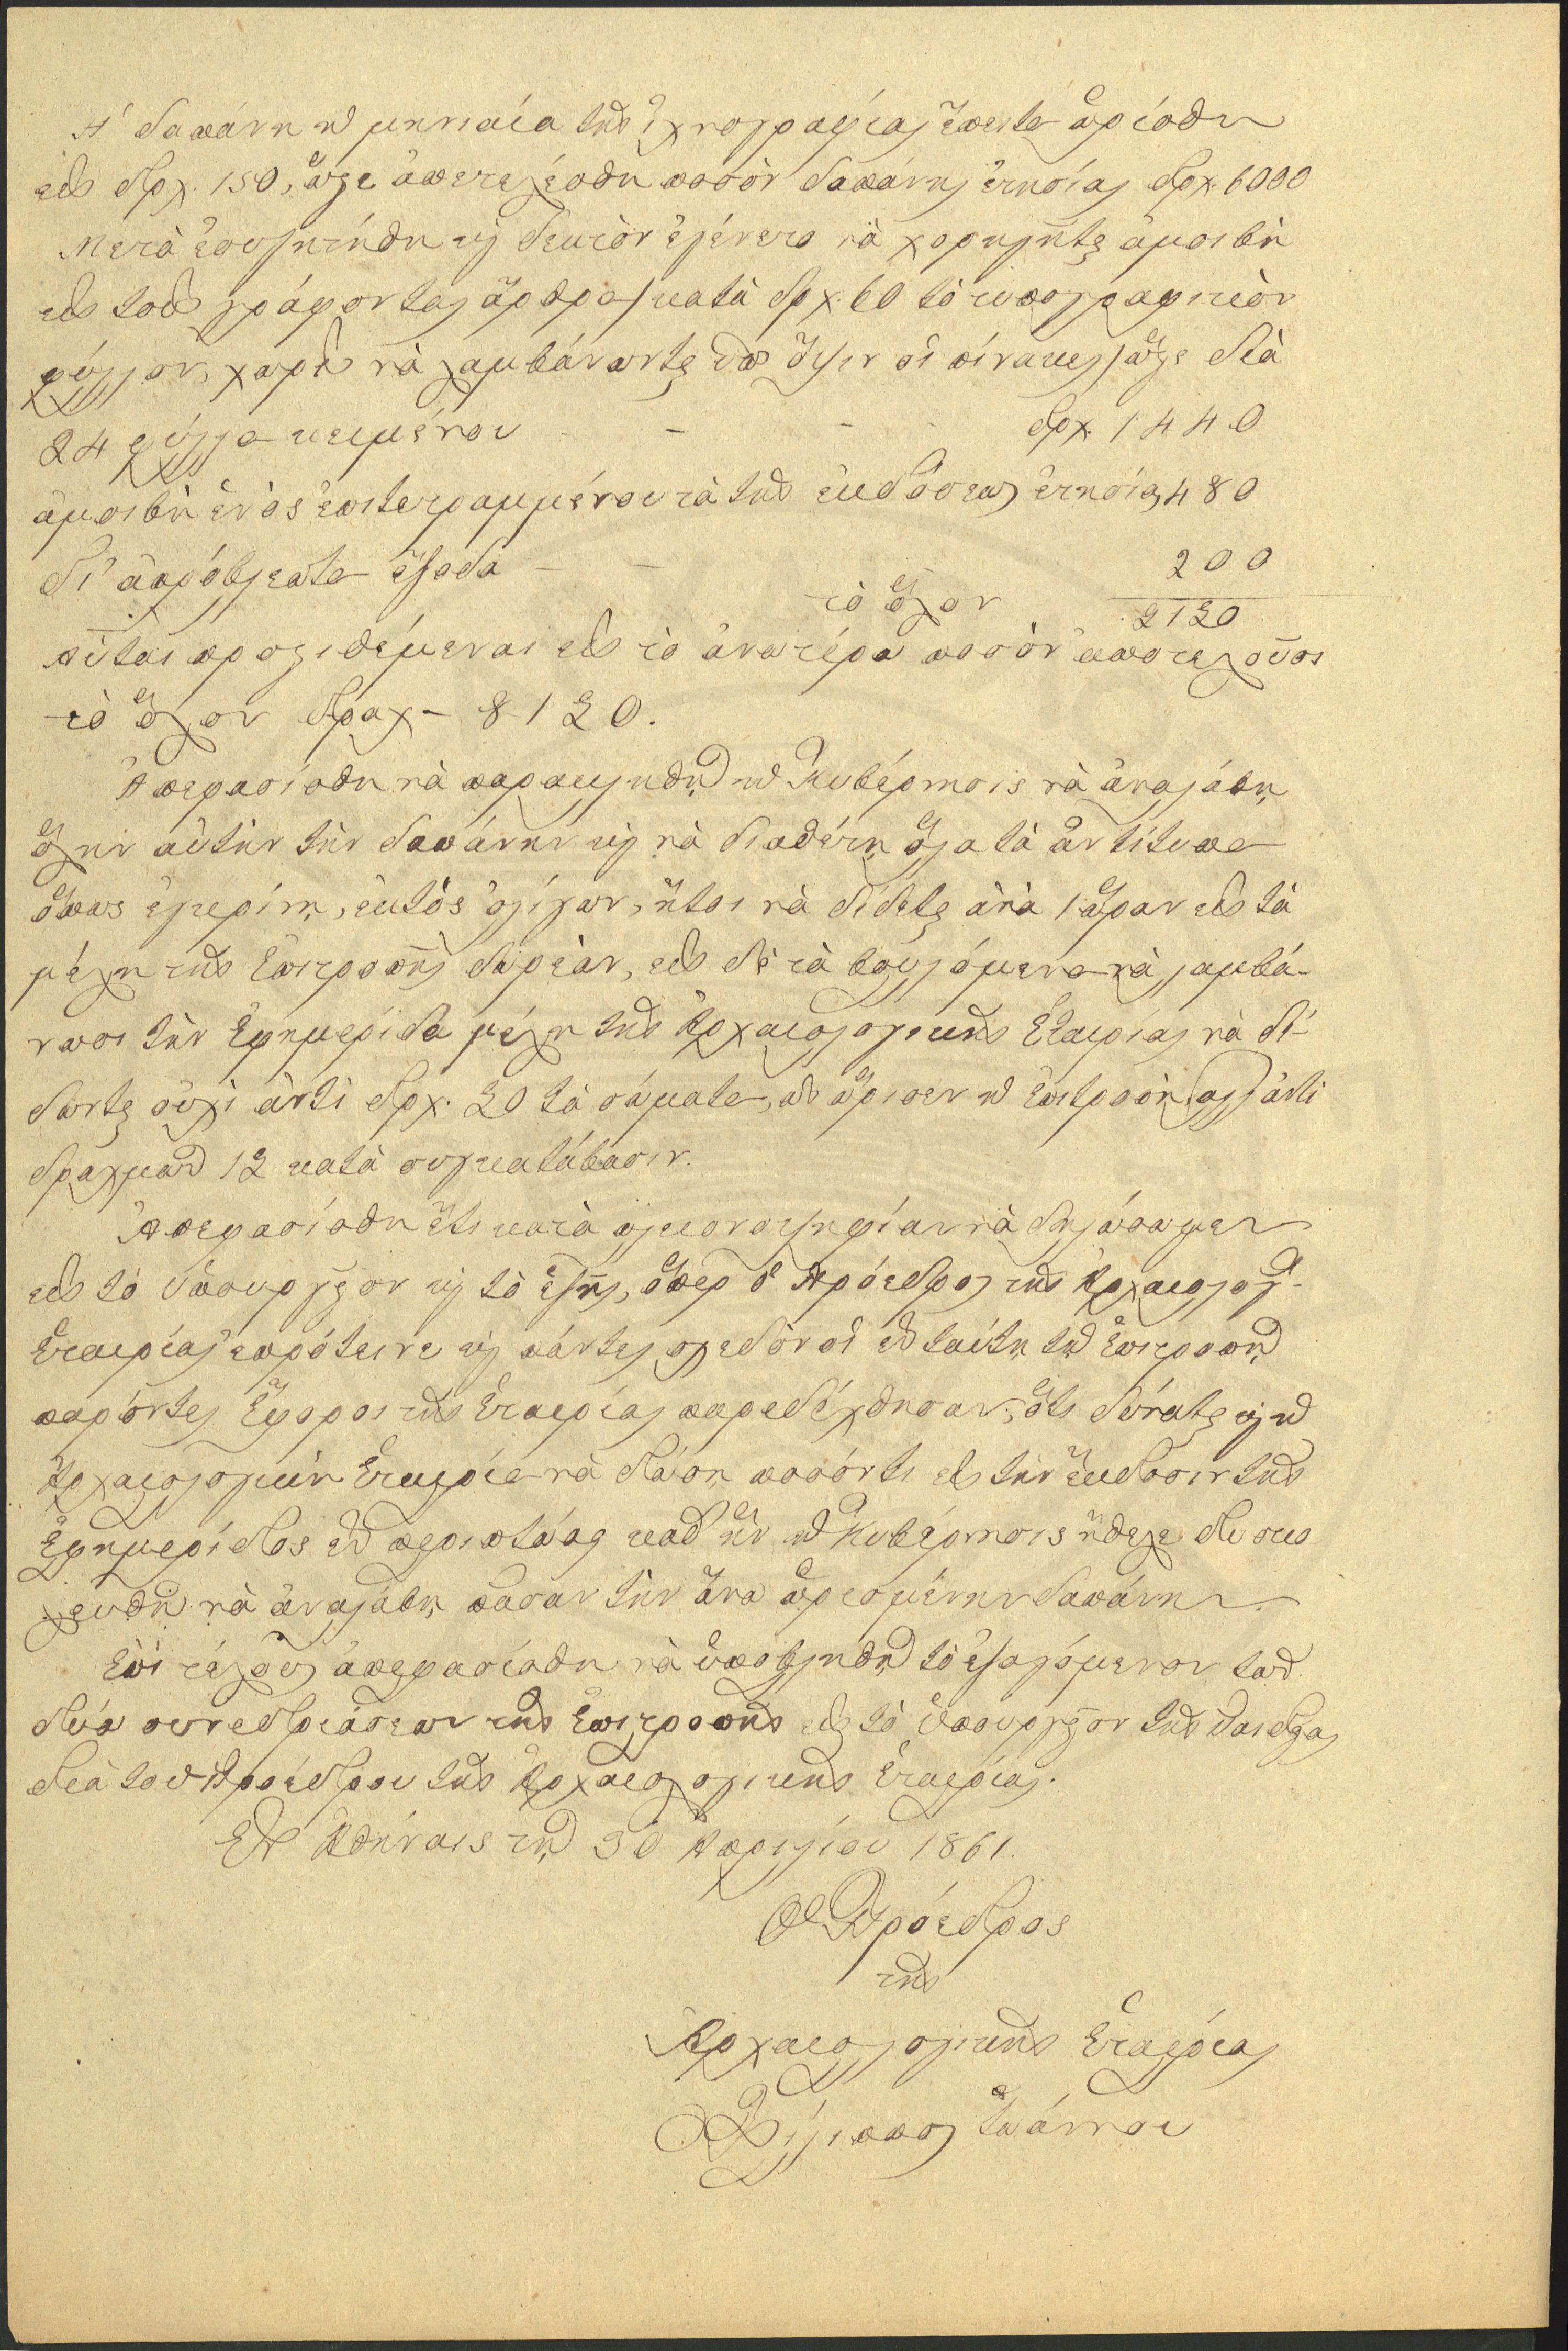 Ἡ δαπάνη ἡ μηνιαία τῆς ἰχνογραφίας ἔπειτα ὡρίσθη
εἰς δρχ. 150, ὥστε ἀπετελέσθη ποσὸν δαπάνης ἐτησίας δρχ. 6000
Μετὰ ἐσυζητήθη καὶ δεκτὸν ἐγένετο νὰ χορηγῆται ἀμοιβὴ
εἰς τοὺς γράφοντας ἄρθρα/κατὰ δρχ. 60 τὸ τυπογραφικὸν
φύλλον, χωρὶς νὰ λαμβάνωνται ὑπ' ὄψιν οἱ πίνακες/ὥστε διὰ
24 φύλλα κειμένου - - - δρχ. 1440
ἀμοιβὴ ἑνὸς ἐπιτετραμμένου τὰ τῆς ἐκδόσεως ἐτησία, 480
δι' ἀπρόβλεπτα ἔξοδα - - 200
τὸ ὅλον 2120
Αὗται προστιθέμεναι εἰς τὸ ἀνωτέρω ποσὸν ἀποτελοῦσι
τὸ ὅλον δραχ- 8120.
Ἀπεφασίσθη νὰ παρακληθῇ ἡ Κυβέρνησις νὰ ἀναλάβῃ
ὅλην αὐτὴν τὴν δαπάνην καὶ νὰ διαθέτῃ ὅλα τὰ ἀντίτυπα
ὅπως ἐγκρίνῃ, ἐκτὸς ὀλίγων, ἤτοι νὰ δίδεται ἀνὰ 1 ὥραν εἰς τὰ
μέλη τῆς Ἐπιτροπῆς δωρεὰν, εἰς δὲ τὰ βουλόμενα νὰ λαμβά-
νωσι τὴν Ἐφημερίδα μέλη τῆς Ἀρχαιολογικῆς Ἑταιρίας νὰ δί-
δωνται οὐχὶ ἀντὶ δρχ. 20 τὰ σώματα, ὡς ὥρισεν ἡ Ἐπιτροπὴ, ἀλλ' ἀντὶ
δραχμῶν 12 κατὰ συγκατάβασιν.
Ἀπεφασίσθη ἔτι κατὰ πλειονοψηφίαν νὰ δηλώσωμεν
εἰς τὸ Ὑπουργεῖον καὶ τὸ ἑξῆς, ὅπερ ὁ Πρόεδρος τῆς Ἀρχαιολογ.
Ἑταιρίας ἐπρότεινε καὶ πάντες σχεδὸν οἱ ἐν ταύτῃ τῇ Ἐπιτροπῇ
παρόντες Ἔφοροι τῆς Ἑταιρίας παρεδέχθησαν, ὅτι δύναται καὶ ἡ
Ἀρχαιολογικὴ Ἑταιρία νὰ δώσῃ ποσόν τι εἰς τὴν ἔκδοσιν τῆς
Ἐφημερίδος ἐν περιπτώσει καθ' ἣν ἡ Κυβέρνησις ἤθελε δυσκο-
λευθῆ νὰ ἀναλάβῃ πᾶσαν τὴν ἄνω ὡρισμένην δαπάνην.
Ἐπὶ τέλους ἀπεφασίσθη νὰ ὑποβληθῇ τὸ ἐξαγόμενον τῶν
δύο συνεδριάσεων τῆς Ἐπιτροπῆς εἰς τὸ Ὑπουργεῖον τῆς Παιδείας
διὰ τοῦ Προέδρου τῆς Ἀρχαιολογικῆς Ἑταιρίας.
Ἐν Ἀθήναις τῇ 30 Ἀπριλίου 1861.
Ὁ Πρόεδρος
τῆς
Ἀρχαιολογικῆς Ἑταιρίας
Φίλιππος Ἰωάννου